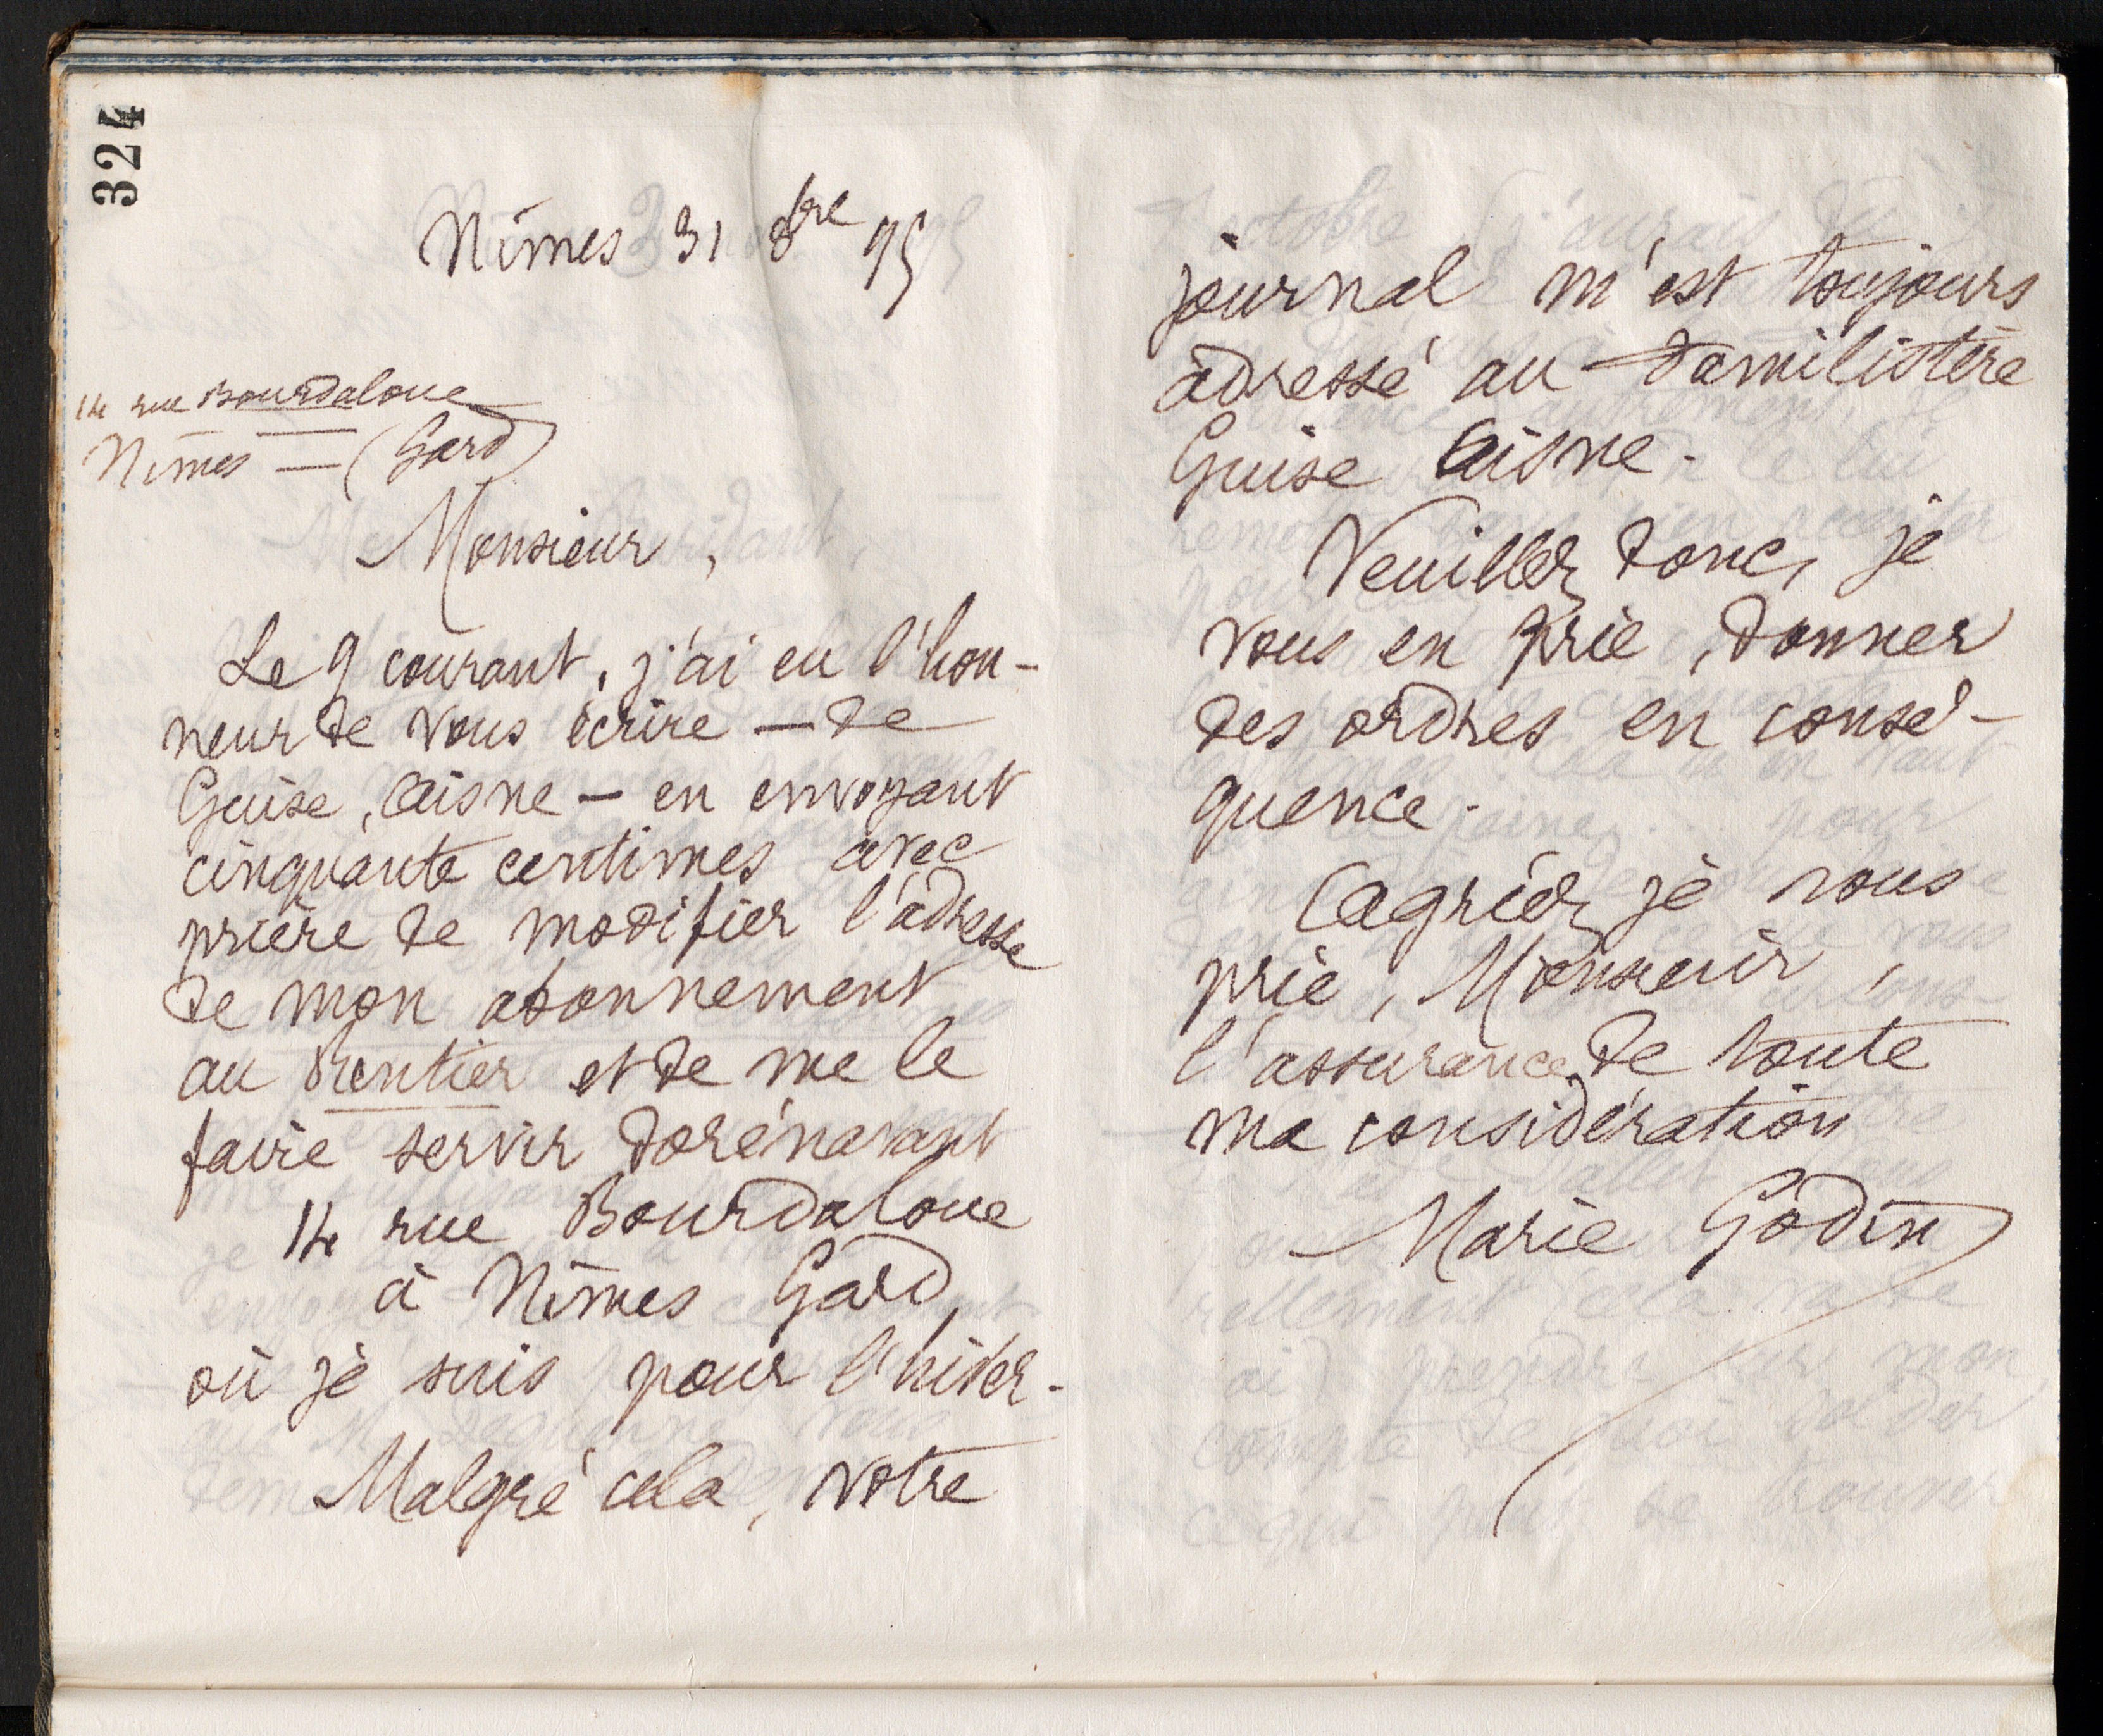 324
Nîmes 31 8bre 95
14 rue Bourdaloue
Nîmes — (Gard)
Monsieur,
Le 9 courant, j'ai eu l'hon-
neur de vous écrire — de
Guise, Aisne — en envoyant
cinquante centimes avec
prière de modifier l'adresse
de mon abonnement
au Rentier et de me le
faire servir dorénavant
14 rue Bourdaloue
à Nîmes Gard,
où je suis pour l'hiver.
Malgré cela, votre
journal m'est toujours
adressé au Familistère
Guise Aisne.
Veuillez donc, je
vous en prie, donner
des ordres en consé-
quence.
Agréez je vous
prie, Monsieur,
l'assurance de toute
ma considération
Marie Godin